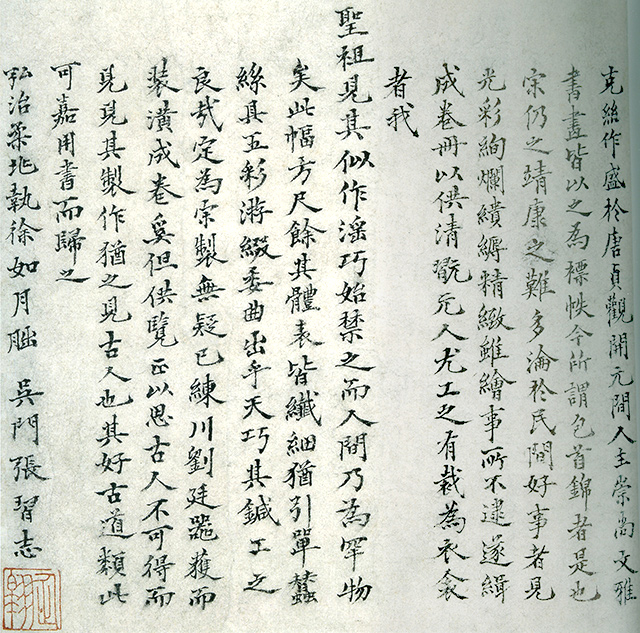 克絲作盛於唐貞觀開元間人主崇尚文雅
書畫皆以之為標帙今所謂包首錦者是也
宋仍之靖康之難多淪於民間好事者見
光彩絢爛繢縟精緻雖繪事所不逮遂緝
成卷冊以供清翫元人尤工之有裁為衣衾
者我
聖祖見其似作淫巧始禁之而人間乃為罕物
矣此幅方尺餘其體表皆纖細猶引單蠶
絲具五彩游綴委曲出乎天巧其鍼工之
良哉定為宋製無疑已練川劉廷器獲而
裝潢成卷奚但供覽正以思古人不可得而
見見其製作猶之見古人也其好古道類此
可嘉用書而歸之
弘治柔兆執徐如月朏 吳門張習志
企翱